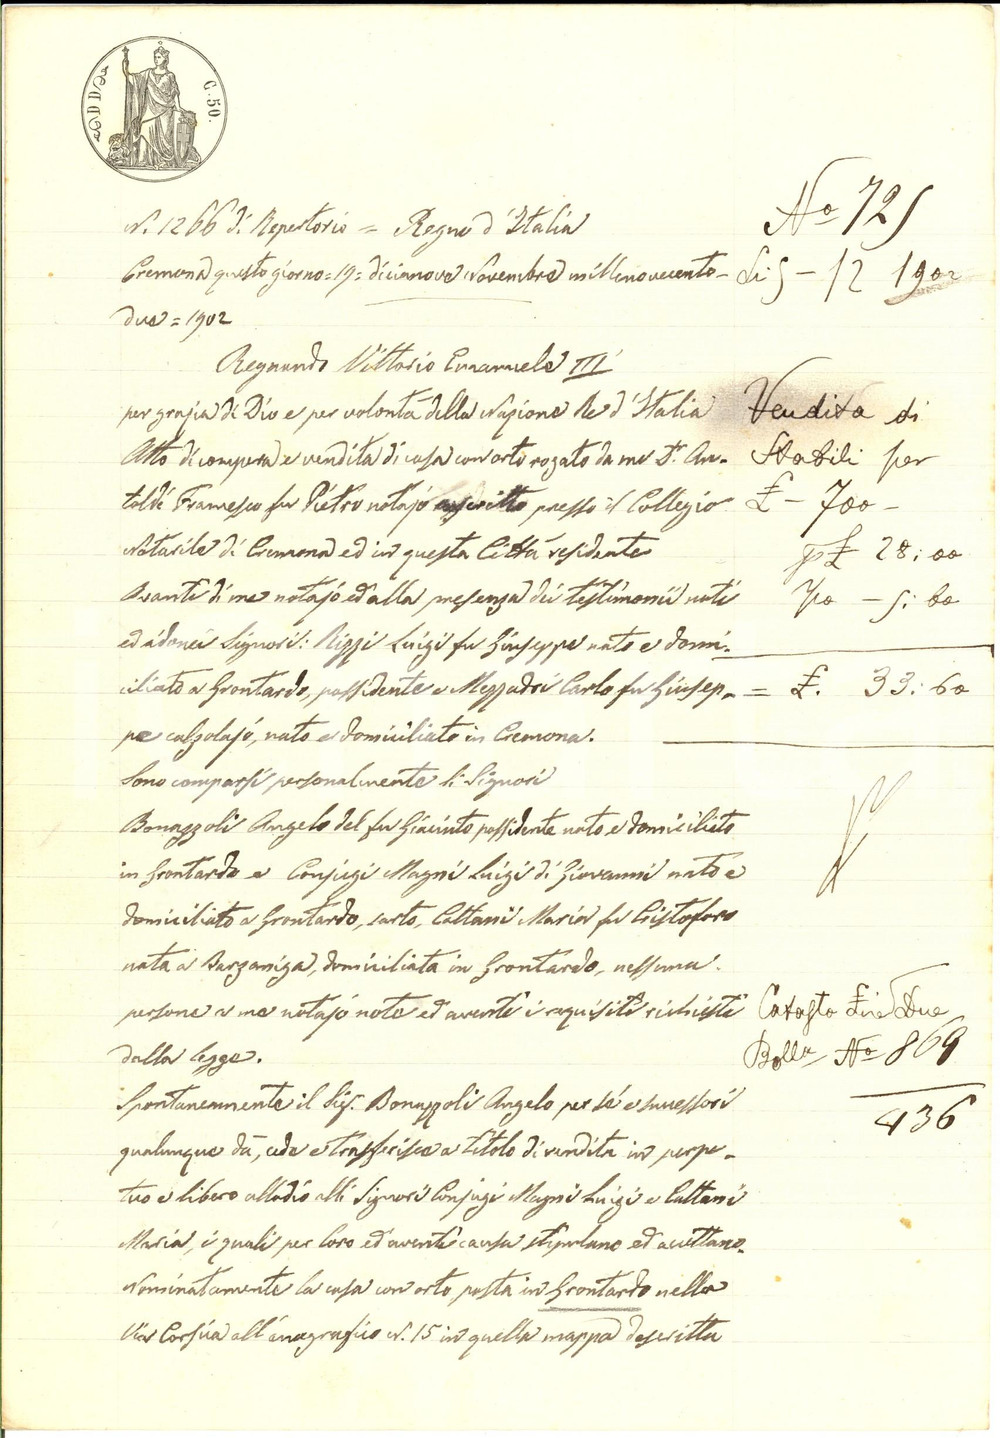 C. 50.
N. 1266 di Repertorio = Regno d'Italia
Cremona questo giorno = 19 = dicianove Novembre millenovecento-
due = 1902
Regnando Vittorio Emanuele III
per grazia di Dio e per volontà della Nazione Re d'Italia
Atto di compera e vendita di casa con orto rogato da me Dr. An-
taldi Francesco fu Pietro notajo inscritto presso il Collegio
Notarile di Cremona ed in questa Città residente
Avanti di me notajo ed alla presenza dei testimonii noti
ed idonei Signori: Rizzi Luigi fu Giuseppe nato e domi-
ciliato a Grontardo, possidente e Mezzadri Carlo fu Giusep-
pe calzolajo, nato e domiciliato in Cremona.
Sono comparsi personalmente li Signori
Bonazzoli Angelo del fu Giacinto possidente nato e domiciliato
in Grontardo e Conjugi Magni Luigi di Giovanni nato e
domiciliato a Grontardo, sarto, Cattani Maria fu Cristoforo
nata a Barzaniga, domiciliata in Grontardo, nessuna.
persone a me notajo note ed aventi i requisiti richiesti
dalla legge.
Spontaneamente il Sig. Bonazzoli Angelo per sé e successori
qualunque dà, cede e trasferisce a titolo di vendita in perpe-
tuo e libero allodio alli Signori Conjugi Magni Luigi e Cattani
Maria, i quali per loro ed aventi causa stipulano ed accettano.
Nominatamente la casa con orto posta in Grontardo nella
Via Corsica all'anagrafico N. 15 in quella mappa descritta
No 725
Li 5 - 12 1902
Vendita di
Stabili per
£ - 700 -
£ 28:00
- 5:60
= £. 33:60
Catasto Lire Due
Bolla No 869
436